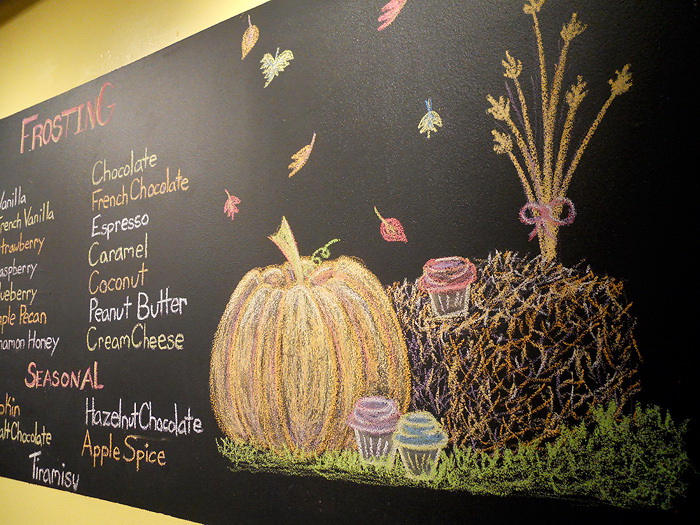 FROSTING
Vanilla
French Vanilla
Strawberry
aspberry
ueberry
ple Pecan
namon Honey
Chocolate
French Chocolate
Espresso
Caramel
Coconut
Peanut Butter
Cream Cheese
SEASONAL
pkin
alt Chocolate
Hazelnut Chocolate
Apple Spice
Tiramisu